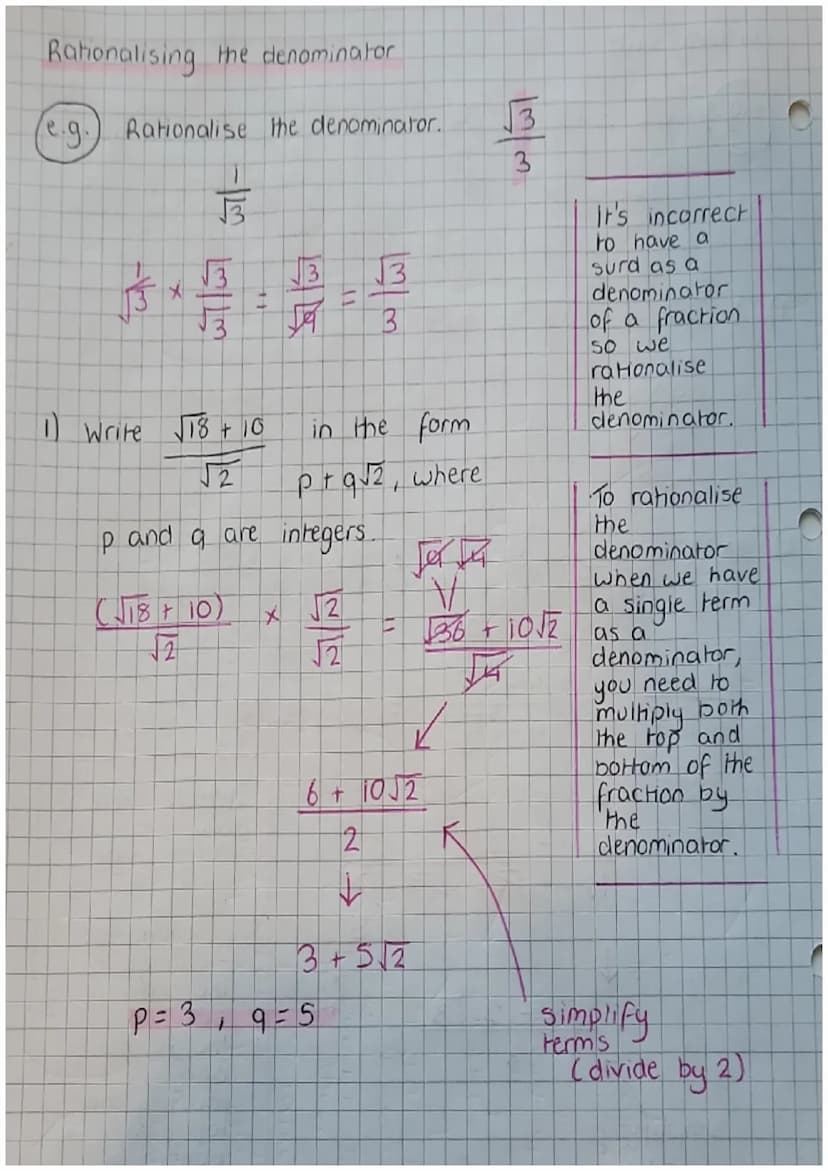 Rationalising the denominator
e.g. Rationalise the denominator.
√3/3
1/√3
1/√3 × √3/√3 = √3/√9 = √3/3
It's incorrect
to have a
surd as a
denominator
of a fraction
so we
rationalise
the
denominator.
1) Write (√18 + 10)/√2 in the form
p + q√2, where
p and q are integers.
√9 √4
(√18 + 10)/√2 × √2/√2 = (√36 + 10√2)/√4
(6 + 10√2)/2
3 + 5√2
p = 3, q = 5
simplify
terms
(divide by 2)
To rationalise
the
denominator
when we have
a single term
as a
denominator,
you need to
multiply both
the top and
bottom of the
fraction by
the
denominator.